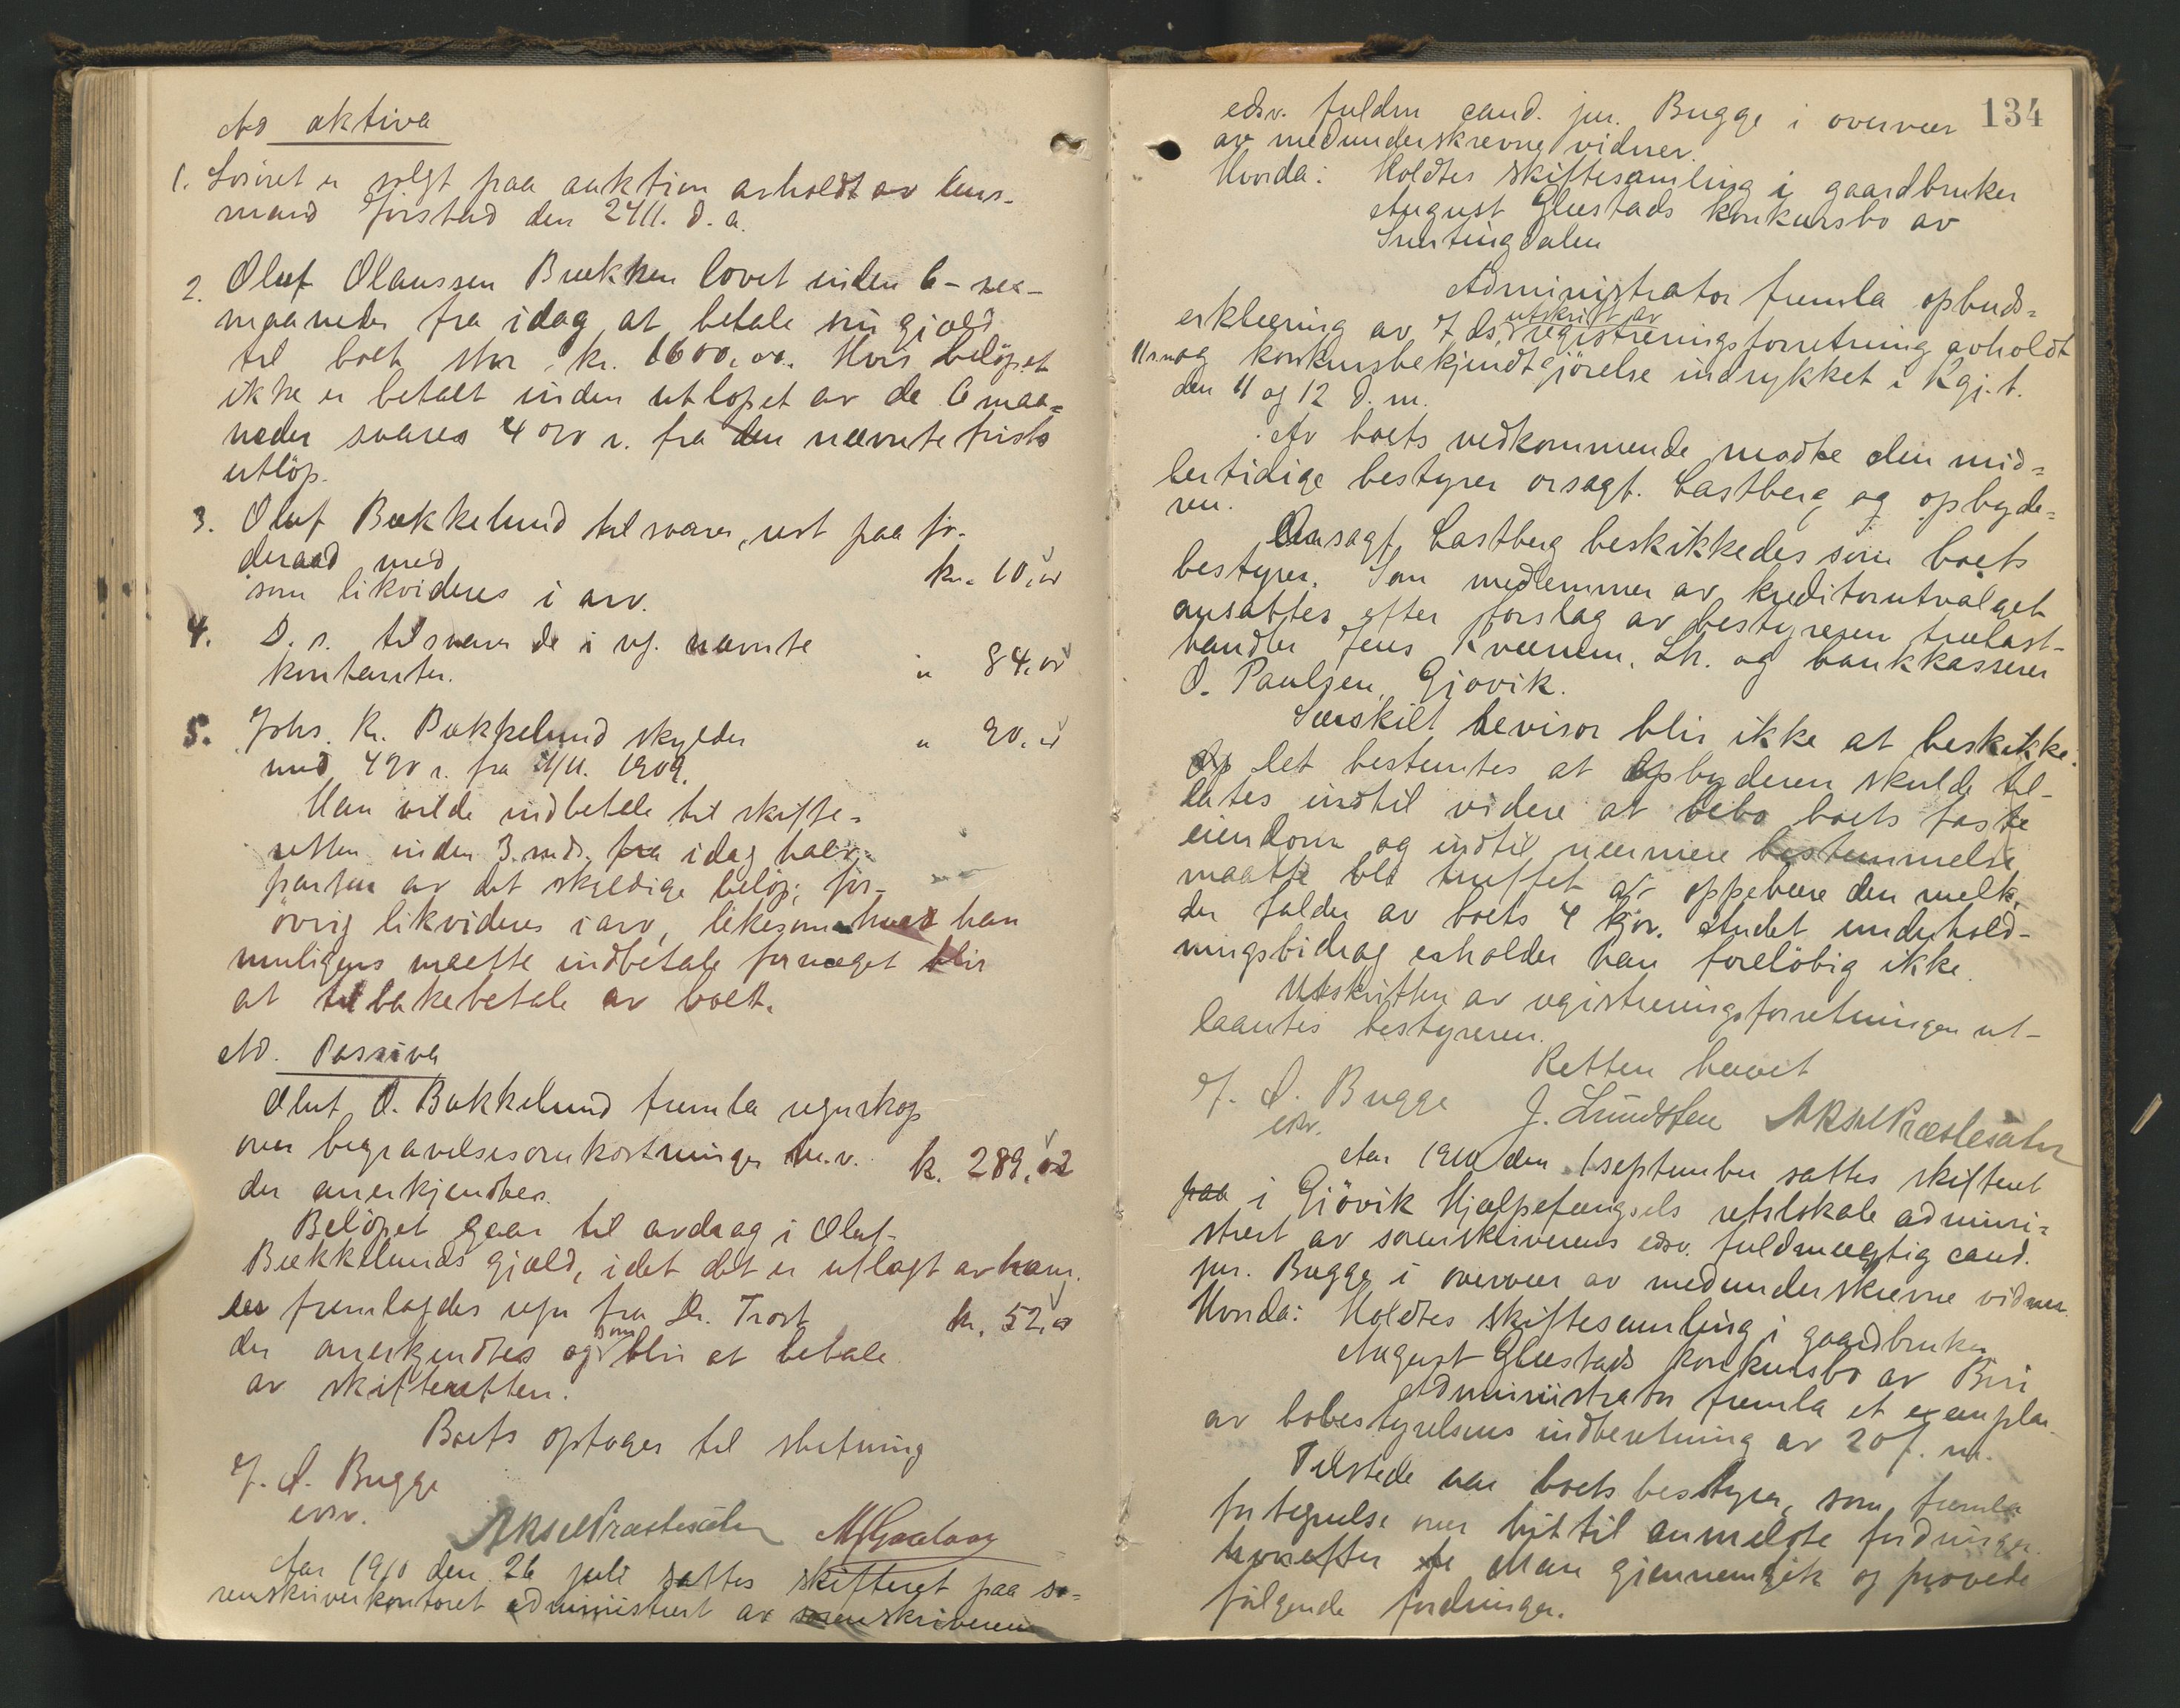 Ad aktiva
1. Lösöret er solgt paa auktion avholdt av lens-
mand Jörstad den 24/11. d. a.
2. Oluf Olaussen Brækken lovet inden 6 - sex -
maaneder fra idag at betale sin gjæld
til boet stor kr. 1600,00. Hvis belöpet
ikke er betalt inden utlopet av de 6 maa=
neder svares 4 0/0 r. fra den nævnte frists
utlöp.
3. Oluf Bækkelund tilsvarer, rest paa fö-
deraad med kr. 10,00
som likvideres i arv.
4. D. s. tilsvarer de i rf. nævnte
kontanter. " 84,00
5. Johs. K. Bækkelund skylder " 90,00
med 4 0/0 r. fra 11/11. 1909.
Han vilde indbetale til skifte=
retten inden 3 mds. fra idag halv-
parten av det skyldige belöp; för-
övrig likvideres i arv, likesom hvad han
muligens maatte indbetale formeget blir
at tilbakebetale av boet.
Ad. Passiva
Oluf O. Bækkelund fremla regnskap
over begravelsesomkostninger m.v. k. 289,02
der anerkjendtes.
Belöpet gaar til avdrag i Oluf
Bækkelunds gjæld, idet det er utlagt av ham.
fremlagdes regn fra Dr. Trost kr. 52,00
der anerkjendtes og som blir at betale
av skifteretten.
Boets optages til slutning
J. S. Bugge
edsv. Aksel Præstesæter
Aar 1910 den 26 juli sattes skifteret paa so=
renskriverkontoret administrert av sorenskriverens
134
edsv. fuldm cand. jur. Bugge i overvær
av medunderskrevne vidner.
Hvorda: Holdtes skiftesamling i gaardbruker
August Glæstads konkursbo av
Snertingdalen
Administrator fremla opbuds=
utskrift av
erklæring av 7 ds, registreringsforretning avholdt
11 s.m. og konkursbekjendtgjörelse indrykket i Kgj.t.
den 11 og 12 d. m.
Av boets vedkommende mødte den mid=
lertidige bestyrer orsagf. Castberg og opbyde=
ren.
Orsagf. Castberg beskikkedes som boets
bestyrer. Som medlemmer av kreditorutvalget
ansattes efter forslag av bestyreren trælast-
handler Jens Kværnum, Lh. og bankkasserer
O. Paulsen, Gjøvik.
Særskilt revisor blir ikke at beskikke.
Det bestemtes at opbyderen skulde til-
lates indtil videre at bebo boets faste
eiendom og indtil nærmere bestemmelse
maatte bli truffet at oppebære den melk,
der falder av boets 4 kjör. Andet underhold-
ningsbidrag erholder han foreløbig ikke.
Utskriften av registreringsforretningen ut-
laantes bestyreren.
Retten hævet
J. S. Bugge J. Lundsten Aksel Præstesæter
edsv.
Aar 1910 den 1 september sattes skifteret
paa i Gjövik Hjælpefængsels retslokale admini=
strert av sorenskriverens edsv. fuldmægtig cand.
jur. Bugge i overvær av medunderskrevne vidner.
Hvorda: Holdtes skiftesamling i gaardbruker
August Glæstads konkursbo av Biri
Administrator fremla et exemplar
av bobestyrelsens indberetning av 20 f. m.
Tilstede var boets bestyrer, som fremla
fortegnelse over hittil anmeldte fordringer
hvorefter Man gjennemgik og prøvede
følgende fordringer.